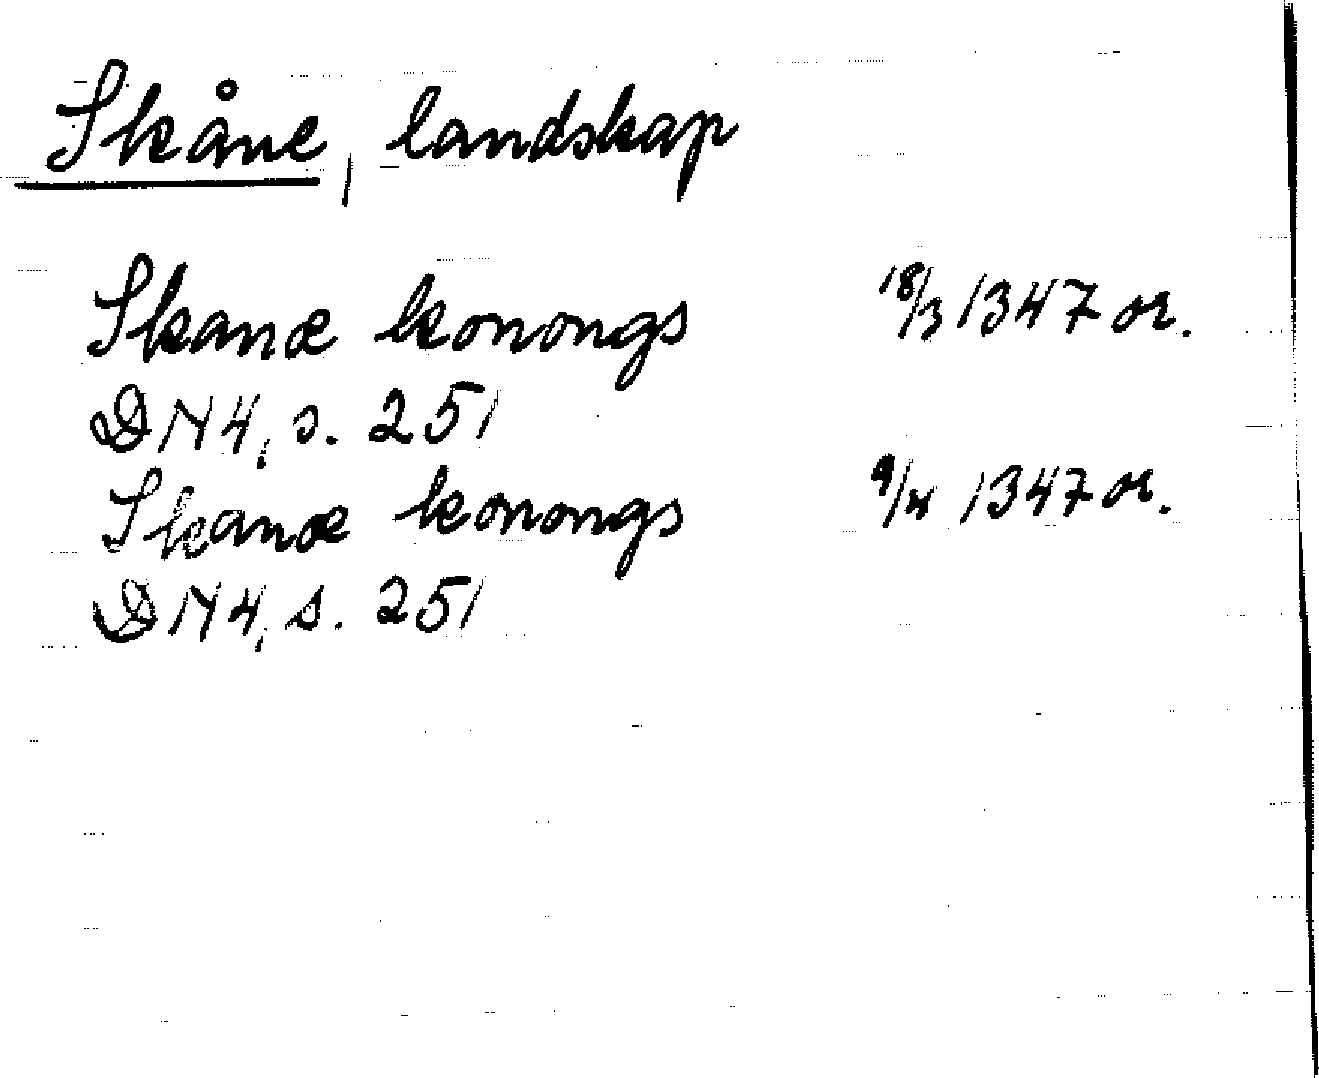 Skåne, landskap
Skanæ konongs 18/3 1347 or.
DN 4, s. 251
Skanæ konongs 9/4 1347 or.
DN 4, s. 251